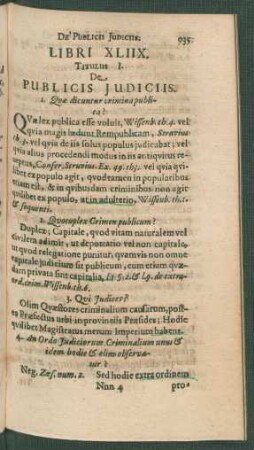 De Publicis Judiciis. 935
LIBRI XLIIX.
Titulus I.
De
PUBLICIS JUDICIIS.
1. Quæ dicuntur crimina publi-
ca?
QVæ lex publica esse voluit, Wissenb. th. 4. vel
qvia magis lædunt Rempublicam, Struvius
th. 3. vel qvia de iis solus populus judicabat; vel
qvia alius procedendi modus in iis antiqvitus re-
ceptus, Confer. Struvius. Ex. 49. th. 3. vel qvia qvi-
libet ex populo agit, qvod tamen in popularibus
etiam est, & in quibusdam criminibus non agit
quilibet ex populo, ut in adulterio, Wissenb. th. 1.
& sequenti.
2. Quotuplex Crimen publicum?
Duplex; Capitale, qvod vitam naturalem vel
civilem adimit, ut deportatio vel non capitale,
ut qvod relegatione punitur, qvamvis non omne
capitale judicium sit publicum, cum etiam quæ-
dam privata sint capitalia, Et 5. 2. & 19. de extra-
ord. crim. Wissenb. th. 6.
3. Qui Judices?
Olim Qvæstores criminalium causarum, post-
ea Præfectus urbi in provinciis Præsides; Hodie
qvilibet Magistratus merum Imperium habens.
4. An Ordo Judiciorum Criminalium unus &
idem hodie & olim observa-
tur?
Neg. Zæs. num. 2. Sed hodie extra ordinem
Nnn 4 pro-